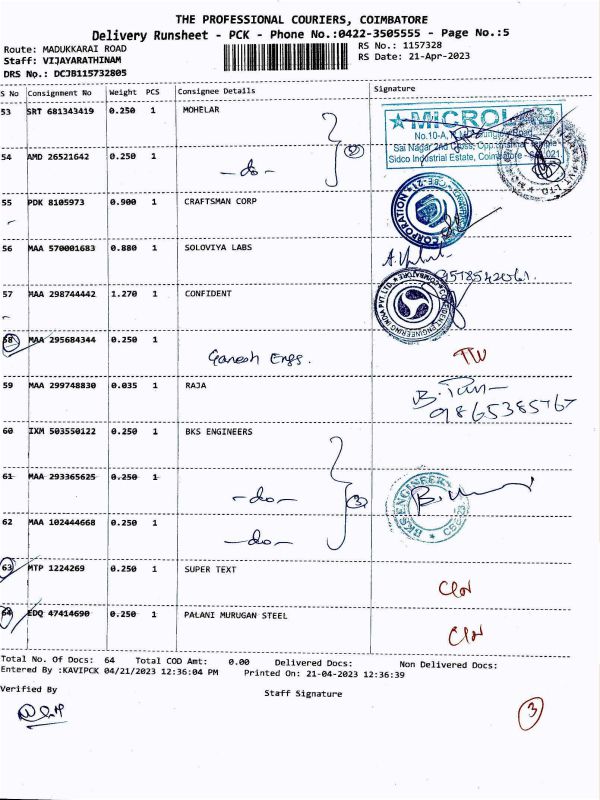 THE PROFESSIONAL COURIERS, COIMBATORE
Delivery Runsheet - PCK - Phone No.:0422-3505555 - Page No.:5
Route: MADUKKARAI ROAD
RS No.: 1157328
Staff: VIJAYARATHINAM
RS Date: 21-Apr-2023
DRS No.: DCJB115732805
S No Consignment No Weight PCS Consignee Details Signature
53 SRT 681343419 0.250 1 MOHELAR
MICROLAB
No.10-A,
Sai Nagar 2nd Cross, Opp.
Sidco Industrial Estate, Coimbatore - 641021
54 AMD 26521642 0.250 1 -do- 2
55 PDK 8105973 0.900 1 CRAFTSMAN CORP
CORPORATION CBE-21
56 MAA 570001683 0.880 1 SOLOVIYA LABS
57 MAA 298744442 1.270 1 CONFIDENT
CONFIDENT ENGINEERING INDIA PVT. LTD. COIMBATORE
58 MAA 295684344 0.250 1
Ganesh Engs.
59 MAA 299748830 0.035 1 RAJA
9865385767
60 IXM 503550122 0.250 1 BKS ENGINEERS
61 MAA 293365625 0.250 1 -do- 3
BKS ENGINEERS CBE-23
62 MAA 102444668 0.250 1 -do-
63 MTP 1224269 0.250 1 SUPER TEXT
64 EDQ 47414690 0.250 1 PALANI MURUGAN STEEL
Total No. Of Docs: 64 Total COD Amt: 0.00 Delivered Docs: Non Delivered Docs:
Entered By :KAVIPCK 04/21/2023 12:36:04 PM Printed On: 21-04-2023 12:36:39
Verified By
Staff Signature
3